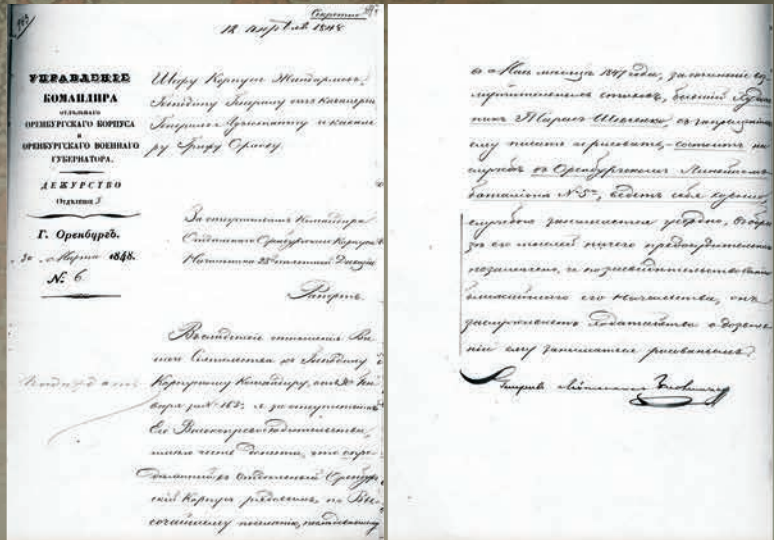 Секретно
12 апреля 1848
УПРАВЛЕНІЕ
КОМАНДИРА
ОТДѢЛЬНАГО
ОРЕНБУРГСКАГО КОРПУСА
И
ОРЕНБУРГСКАГО ВОЕННАГО
ГУБЕРНАТОРА.
ДЕЖУРСТВО
Отдѣленія 3
Г. Оренбургъ.
30 Марта 1848.
№ 6
Шефу Корпуса Жандармовъ,
Господину Генералу отъ кавалеріи
Генералъ Адъютанту и кавале
ру Графу Орлову.
За отсутствіемъ Командира
Отдѣльнаго Оренбургскаго Корпуса
Начальника 23й пѣхотной Дивизіи
Рапортъ.
Вслѣдствіе отношенія Ва
шего Сіятельства къ Господину
Корпусному Командиру, отъ
за № 163, я за отсутствіемъ
Его Высокопревосходительства,
имѣю честь донести, что опре
дѣленный въ Отдѣльный Оренбург
скій Корпусъ рядовымъ, по Вы
сочайшему повелѣнію, послѣдовавшему
въ Маѣ мѣсяцѣ 1847 года, за сочиненіе воз
мутительныхъ стиховъ, бывшій Худож
никъ Тарасъ Шевченко, съ запрещеніемъ
ему писать и рисовать, состоитъ на
службѣ въ Оренбургскомъ Линейномъ
баталіонѣ № 5го, ведетъ себя хорошо,
службою занимается усердно, въ обра
зѣ его мыслей ничего предосудительнаго
незамѣчено, и по засвидѣтельствованію
ближайшаго его начальства, онъ
заслуживаетъ ходатайства о дозволе
ніи ему заниматься рисованьемъ.